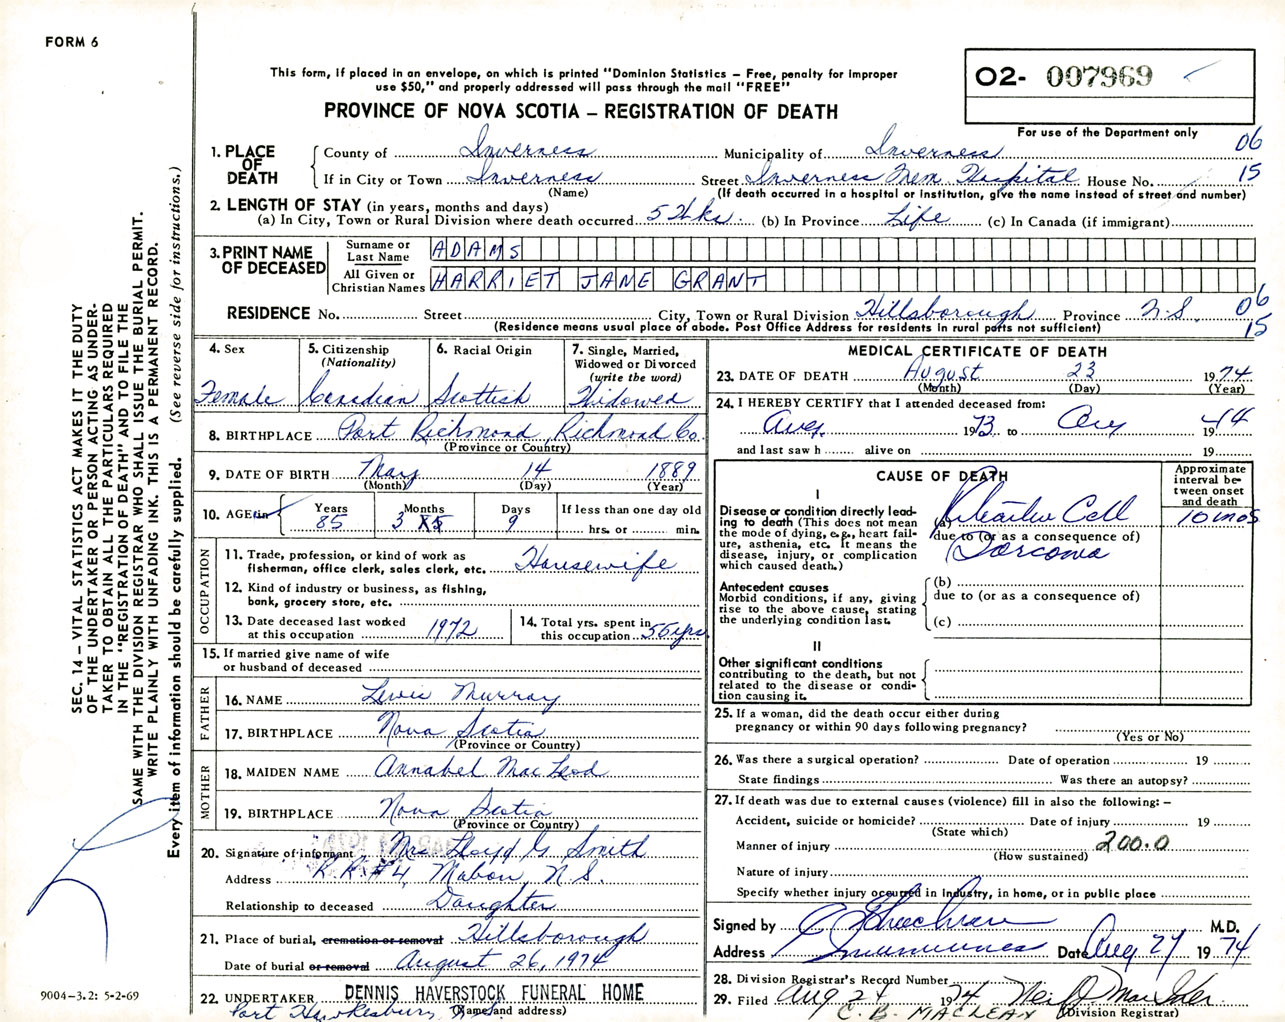 FORM 6
This form, if placed in an envelope, on which is printed "Dominion Statistics – Free, penalty for improper
use $50," and properly addressed will pass through the mail "FREE"
PROVINCE OF NOVA SCOTIA – REGISTRATION OF DEATH
02- 007969
For use of the Department only
06
15
1. PLACE OF DEATH
County of Inverness Municipality of Inverness
If in City or Town Inverness Street Inverness Mem. Hospital House No.
(Name) (If death occurred in a hospital or institution, give the name instead of street and number)
2. LENGTH OF STAY (in years, months and days)
(a) In City, Town or Rural Division where death occurred 5 Wks. (b) In Province Life (c) In Canada (if immigrant)
3. PRINT NAME OF DECEASED
Surname or Last Name ADAMS
All Given or Christian Names HARRIET JANE GRANT
RESIDENCE No. Street City, Town or Rural Division Hillsborough Province N.S. 06
(Residence means usual place of abode. Post Office Address for residents in rural parts not sufficient) 15
4. Sex Female
5. Citizenship (Nationality) Canadian
6. Racial Origin Scottish
7. Single, Married, Widowed or Divorced (write the word) Widowed
8. BIRTHPLACE Port Richmond, Richmond Co.
(Province or Country)
9. DATE OF BIRTH May 14 1889
(Month) (Day) (Year)
10. AGE (in Years 85 Months 3 Days 9 If less than one day old hrs. or min.
OCCUPATION
11. Trade, profession, or kind of work as
fisherman, office clerk, sales clerk, etc. Housewife
12. Kind of industry or business, as fishing,
bank, grocery store, etc.
13. Date deceased last worked
at this occupation 1972
14. Total yrs. spent in
this occupation 55 yrs
15. If married give name of wife
or husband of deceased
FATHER
16. NAME Lewis Murray
17. BIRTHPLACE Nova Scotia
(Province or Country)
MOTHER
18. MAIDEN NAME Annabel MacLeod
19. BIRTHPLACE Nova Scotia
(Province or Country)
20. Signature of informant Mrs Lloyd G Smith
Address R.R.#4, Mabou, N.S.
Relationship to deceased Daughter
21. Place of burial, cremation or removal Hillsborough
Date of burial or removal August 26, 1974
22. UNDERTAKER DENNIS HAVERSTOCK FUNERAL HOME
Port Hawkesbury, N.S. (Name and address)
MEDICAL CERTIFICATE OF DEATH
23. DATE OF DEATH August 23 1974
(Month) (Day) (Year)
24. I HEREBY CERTIFY that I attended deceased from:
Aug. 1973 to Aug 19
and last saw h alive on 19
CAUSE OF DEATH
Approximate interval between onset and death
I
Disease or condition directly leading to death (This does not mean the mode of dying, e.g., heart failure, asthenia, etc. It means the disease, injury, or complication which caused death.)
(a) Cell 10 mos
due to (or as a consequence of)
Sarcoma
Antecedent causes
Morbid conditions, if any, giving rise to the above cause, stating the underlying condition last.
(b)
due to (or as a consequence of)
(c)
II
Other significant conditions
contributing to the death, but not
related to the disease or condition
causing it.
25. If a woman, did the death occur either during
pregnancy or within 90 days following pregnancy?
(Yes or No)
26. Was there a surgical operation? Date of operation 19
State findings Was there an autopsy?
27. If death was due to external causes (violence) fill in also the following: –
Accident, suicide or homicide? Date of injury 19
(State which)
Manner of injury 200.0
(How sustained)
Nature of injury
Specify whether injury occurred in Industry, in home, or in public place
Signed by M.D.
Address Date Aug 27 1974
28. Division Registrar's Record Number
29. Filed Aug 24 1974
C. B. MACLEAN (Division Registrar)
SEC. 14 – VITAL STATISTICS ACT MAKES IT THE DUTY
OF THE UNDERTAKER OR PERSON ACTING AS UNDER-
TAKER TO OBTAIN ALL THE PARTICULARS REQUIRED
IN THE "REGISTRATION OF DEATH" AND TO FILE THE
SAME WITH THE DIVISION REGISTRAR WHO SHALL ISSUE THE BURIAL PERMIT.
WRITE PLAINLY WITH UNFADING INK. THIS IS A PERMANENT RECORD.
Every item of information should be carefully supplied. (See reverse side for instructions.)
9004-3.2: 5-2-69